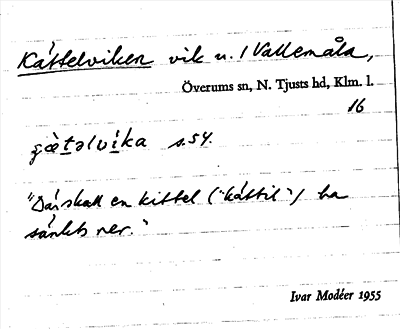 Kättelviken vik u. / Vallemåla,
Överums sn, N. Tjusts hd, Klm. l.
16
s. 54.
"Där skall en kittel ("kättil") ha
sänkts ner."
Ivar Modéer 1955